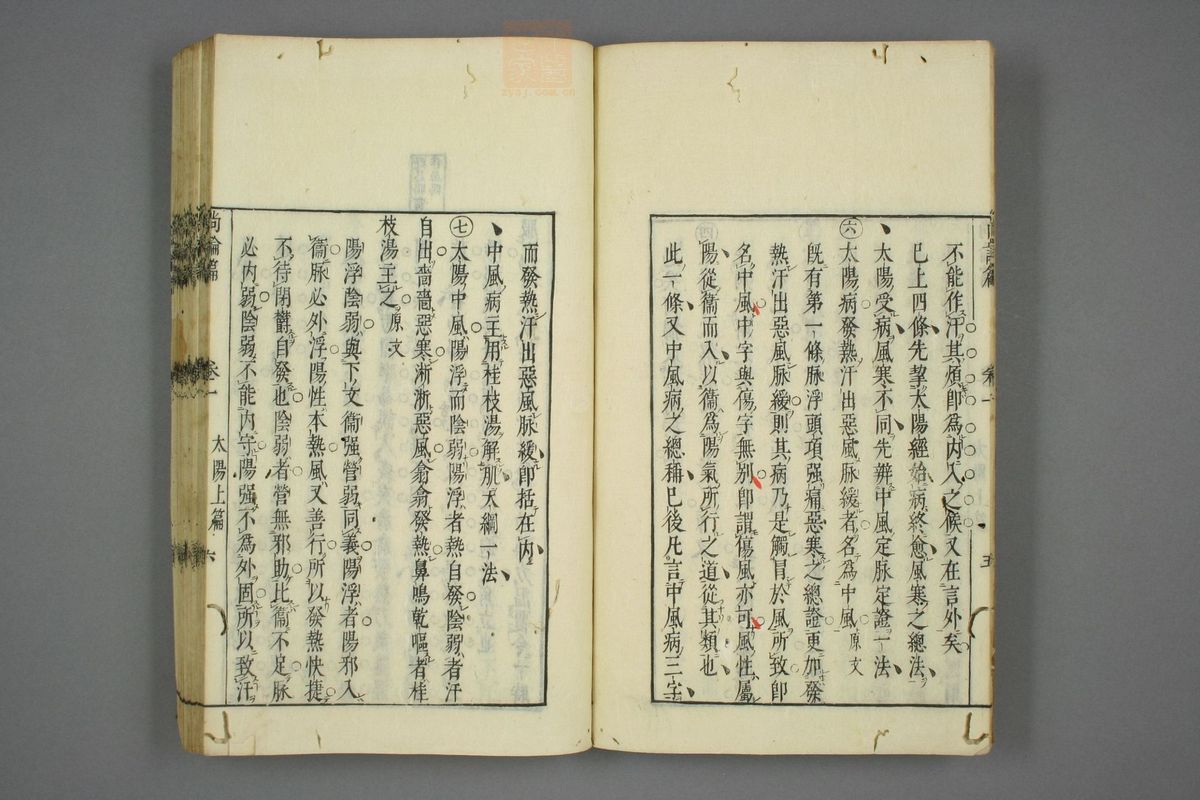 不能作汗其煩即為内入之候又在言外矣
已上四條先挈太陽經始病終愈風寒之總法
太陽受病風寒不同先辨中風定脉定證一法
㊅太陽病發熱汗出惡風脉緩者名為中風原文
既有第一條脉浮頭項强痛惡寒之總證更加發
熱汗出惡風脉緩則其病乃是觸冒於風所致即
名中風中字與傷字無别即謂傷風亦可風性屬
陽從衞而入以衞為陽氣所行之道從其類也
此一條又中風病之總稱已後凡言中風病三字
卷一
五
而發熱汗出惡風脉緩即括在内
中風病主用桂枝湯解肌大綱一法
㊆太陽中風陽浮而陰弱陽浮者熱自發陰弱者汗
自出嗇嗇惡寒淅淅惡風翕翕發熱鼻鳴乾嘔者桂
枝湯主之原文
陽浮陰弱與下文衞强營弱同義陽浮者陽邪入
衞脉必外浮陽性本熱風又善行所以發熱快捷
不待閉欝自發也陰弱者營無邪助比衞不足脉
必内弱陰弱不能内守陽强不為外固所以致汗
尚論篇
卷一
太陽上篇
六
zysj.com.cn